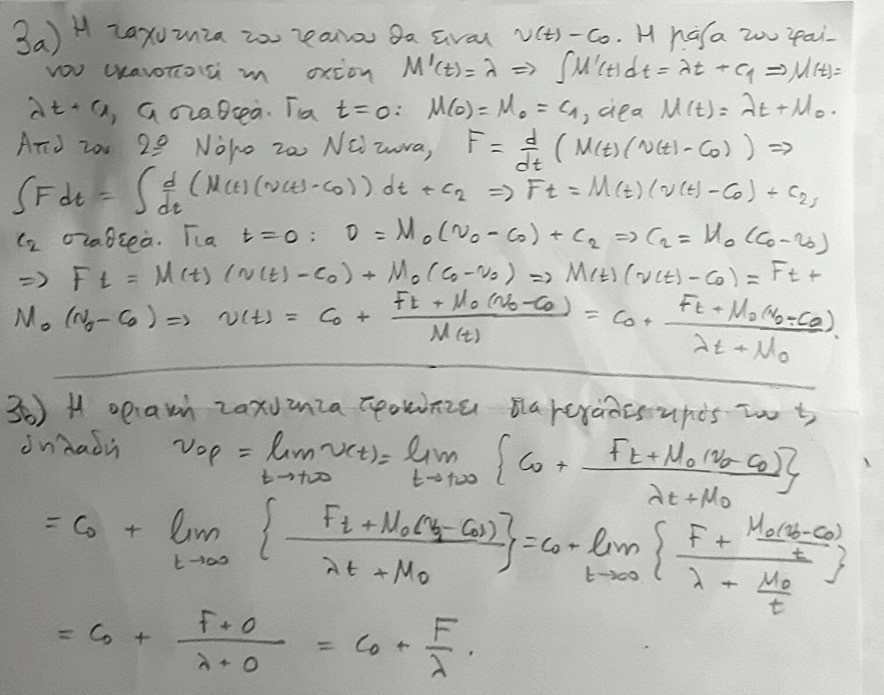 3a) Η ταχύτητα του τραίνου θα είναι v(t) - C₀. Η μάζα του τραί-
νου ικανοποιεί τη σχέση M'(t) = λ => ∫M'(t)dt = λt + C₁ => M(t) =
λt + C₁, C₁ σταθερά. Για t=0: M(0) = M₀ = C₁, άρα M(t) = λt + M₀.
Από τον 2º Νόμο του Νεύτωνα, F = d/dt (M(t)(v(t) - C₀)) =>
∫F dt = ∫ d/dt (M(t)(v(t) - C₀)) dt + C₂ => Ft = M(t)(v(t) - C₀) + C₂,
C₂ σταθερά. Για t=0: 0 = M₀(v₀ - C₀) + C₂ => C₂ = M₀(C₀ - v₀)
=> Ft = M(t)(v(t) - C₀) + M₀(C₀ - v₀) => M(t)(v(t) - C₀) = Ft +
M₀(v₀ - C₀) => v(t) = C₀ + (Ft + M₀(v₀ - C₀))/M(t) = C₀ + (Ft + M₀(v₀ - C₀))/(λt + M₀).
3b) Η οριακή ταχύτητα προκύπτει για μεγάλες τιμές του t,
δηλαδή v_ορ = lim_{t→+∞} v(t) = lim_{t→+∞} {C₀ + (Ft + M₀(v₀ - C₀))/(λt + M₀)}
= C₀ + lim_{t→∞} {(Ft + M₀(v₀ - C₀))/(λt + M₀)} = C₀ + lim_{t→∞} {(F + M₀(v₀ - C₀)/t)/(λ + M₀/t)}
= C₀ + (F + 0)/(λ + 0) = C₀ + F/λ.